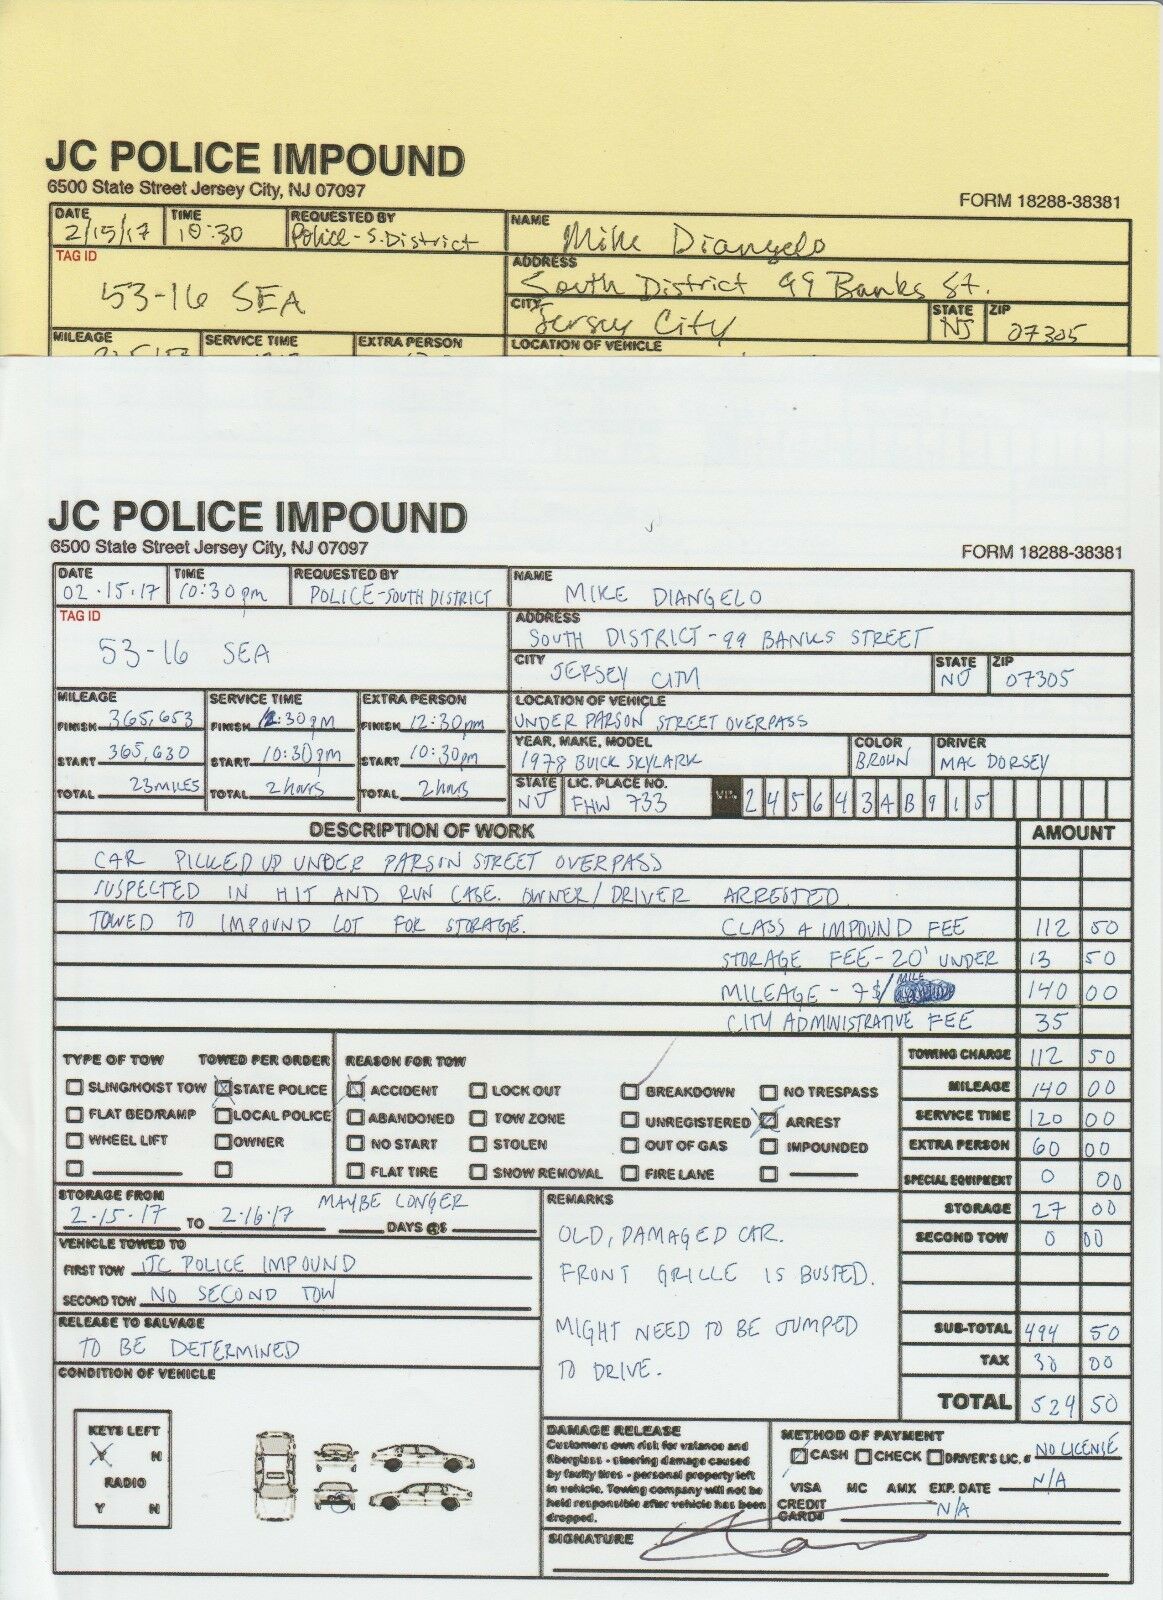 JC POLICE IMPOUND
6500 State Street Jersey City, NJ 07097
FORM 18288-38381
DATE TIME REQUESTED BY NAME
2/15/17 10:30 Police - S. District Mike Diangelo
TAG ID ADDRESS
53-16 SEA South District 99 Banks St.
CITY STATE ZIP
Jersey City NJ 07305
MILEAGE SERVICE TIME EXTRA PERSON LOCATION OF VEHICLE
JC POLICE IMPOUND
6500 State Street Jersey City, NJ 07097
FORM 18288-38381
DATE TIME REQUESTED BY NAME
02.15.17 10:30 pm POLICE-SOUTH DISTRICT MIKE DIANGELO
TAG ID ADDRESS
53-16 SEA SOUTH DISTRICT - 99 BANKS STREET
CITY STATE ZIP
JERSEY CITY NJ 07305
MILEAGE SERVICE TIME EXTRA PERSON LOCATION OF VEHICLE
FINISH 365,653 FINISH 12:30pm FINISH 12:30pm UNDER PARSON STREET OVERPASS
YEAR, MAKE, MODEL COLOR DRIVER
START 365,630 START 10:30pm START 10:30pm 1978 BUICK SKYLARK BROWN MAC DORSEY
STATE LIC. PLACE NO. VIN.
TOTAL 23 MILES TOTAL 2 hours TOTAL 2 hours NJ FHW 733 245643AB915
DESCRIPTION OF WORK AMOUNT
CAR PICKED UP UNDER PARSON STREET OVERPASS
SUSPECTED IN HIT AND RUN CASE. OWNER/DRIVER ARRESTED.
TOWED TO IMPOUND LOT FOR STORAGE. CLASS A IMPOUND FEE 112 50
STORAGE FEE - 20' UNDER 13 50
MILEAGE - 7$/MILE 140 00
CITY ADMINISTRATIVE FEE 35
TYPE OF TOW TOWED PER ORDER REASON FOR TOW TOWING CHARGE 112 50
SLING/HOIST TOW STATE POLICE ACCIDENT LOCK OUT BREAKDOWN NO TRESPASS MILEAGE 140 00
FLAT BED/RAMP LOCAL POLICE ABANDONED TOW ZONE UNREGISTERED ARREST SERVICE TIME 120 00
WHEEL LIFT OWNER NO START STOLEN OUT OF GAS IMPOUNDED EXTRA PERSON 60 00
FLAT TIRE SNOW REMOVAL FIRE LANE SPECIAL EQUIPMENT 0 00
STORAGE FROM MAYBE LONGER REMARKS STORAGE 27 00
2.15.17 TO 2.16.17 DAYS @ $
OLD, DAMAGED CAR. SECOND TOW 0 00
VEHICLE TOWED TO
FIRST TOW JC POLICE IMPOUND FRONT GRILLE IS BUSTED.
SECOND TOW NO SECOND TOW
RELEASE TO SALVAGE MIGHT NEED TO BE JUMPED SUB-TOTAL 494 50
TO BE DETERMINED TO DRIVE. TAX 30 00
CONDITION OF VEHICLE TOTAL 524 50
KEYS LEFT
Y N
RADIO
Y N
DAMAGE RELEASE
Customers own risk for valance and
fiberglass - steering damage caused
by faulty tires - personal property left
in vehicle. Towing company will not be
held responsible after vehicle has been
dropped.
METHOD OF PAYMENT
CASH CHECK DRIVER'S LIC. # NO LICENSE
VISA MC AMX EXP. DATE N/A
CREDIT CARD# N/A
SIGNATURE